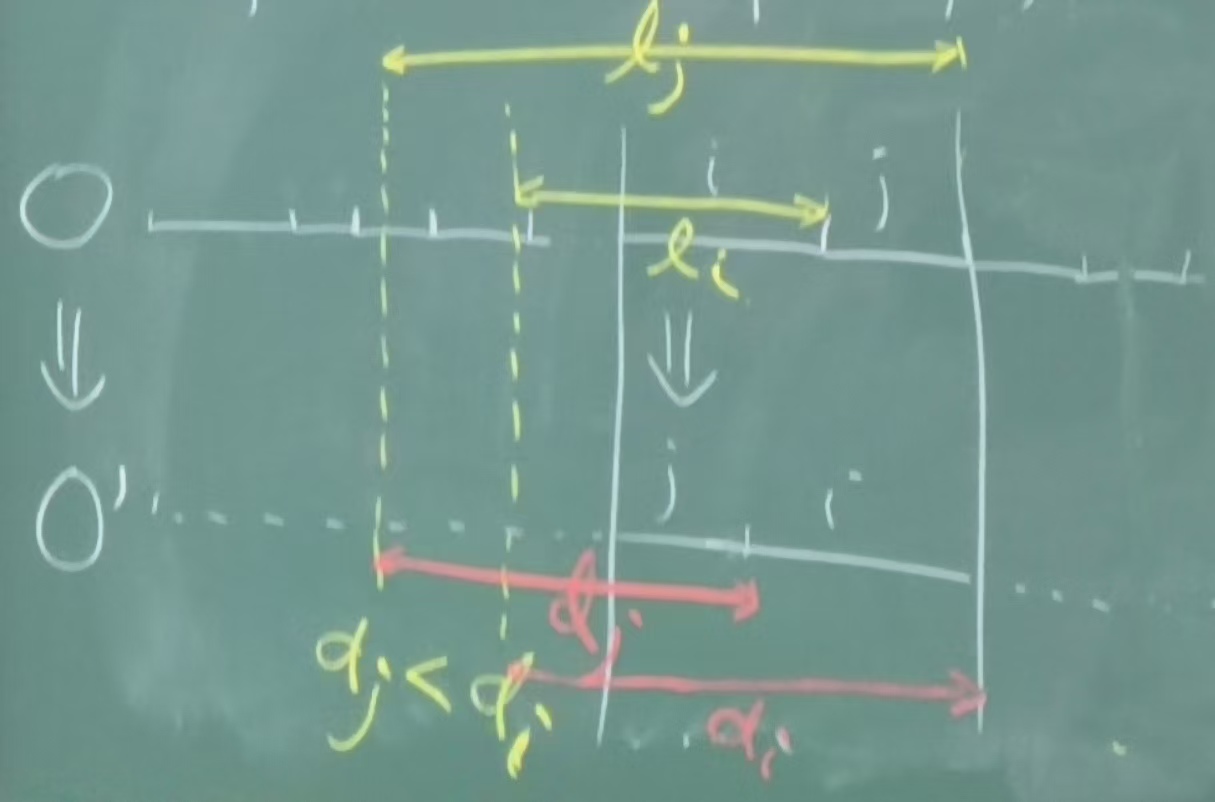 ℓj
O i j
ℓi
⇓ ⇓
O' j i
dj
dj < di
di